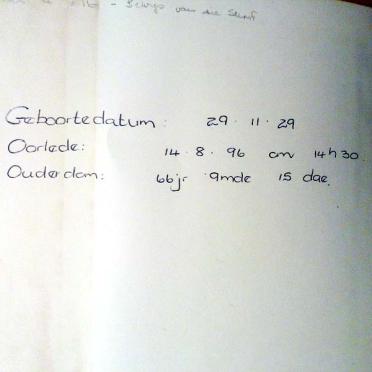 van die
Geboortedatum: 29 . 11 . 29
Oorlede: 14 . 8 . 96 om 14h30
Ouderdom: 66jr 9mde 15 dae.